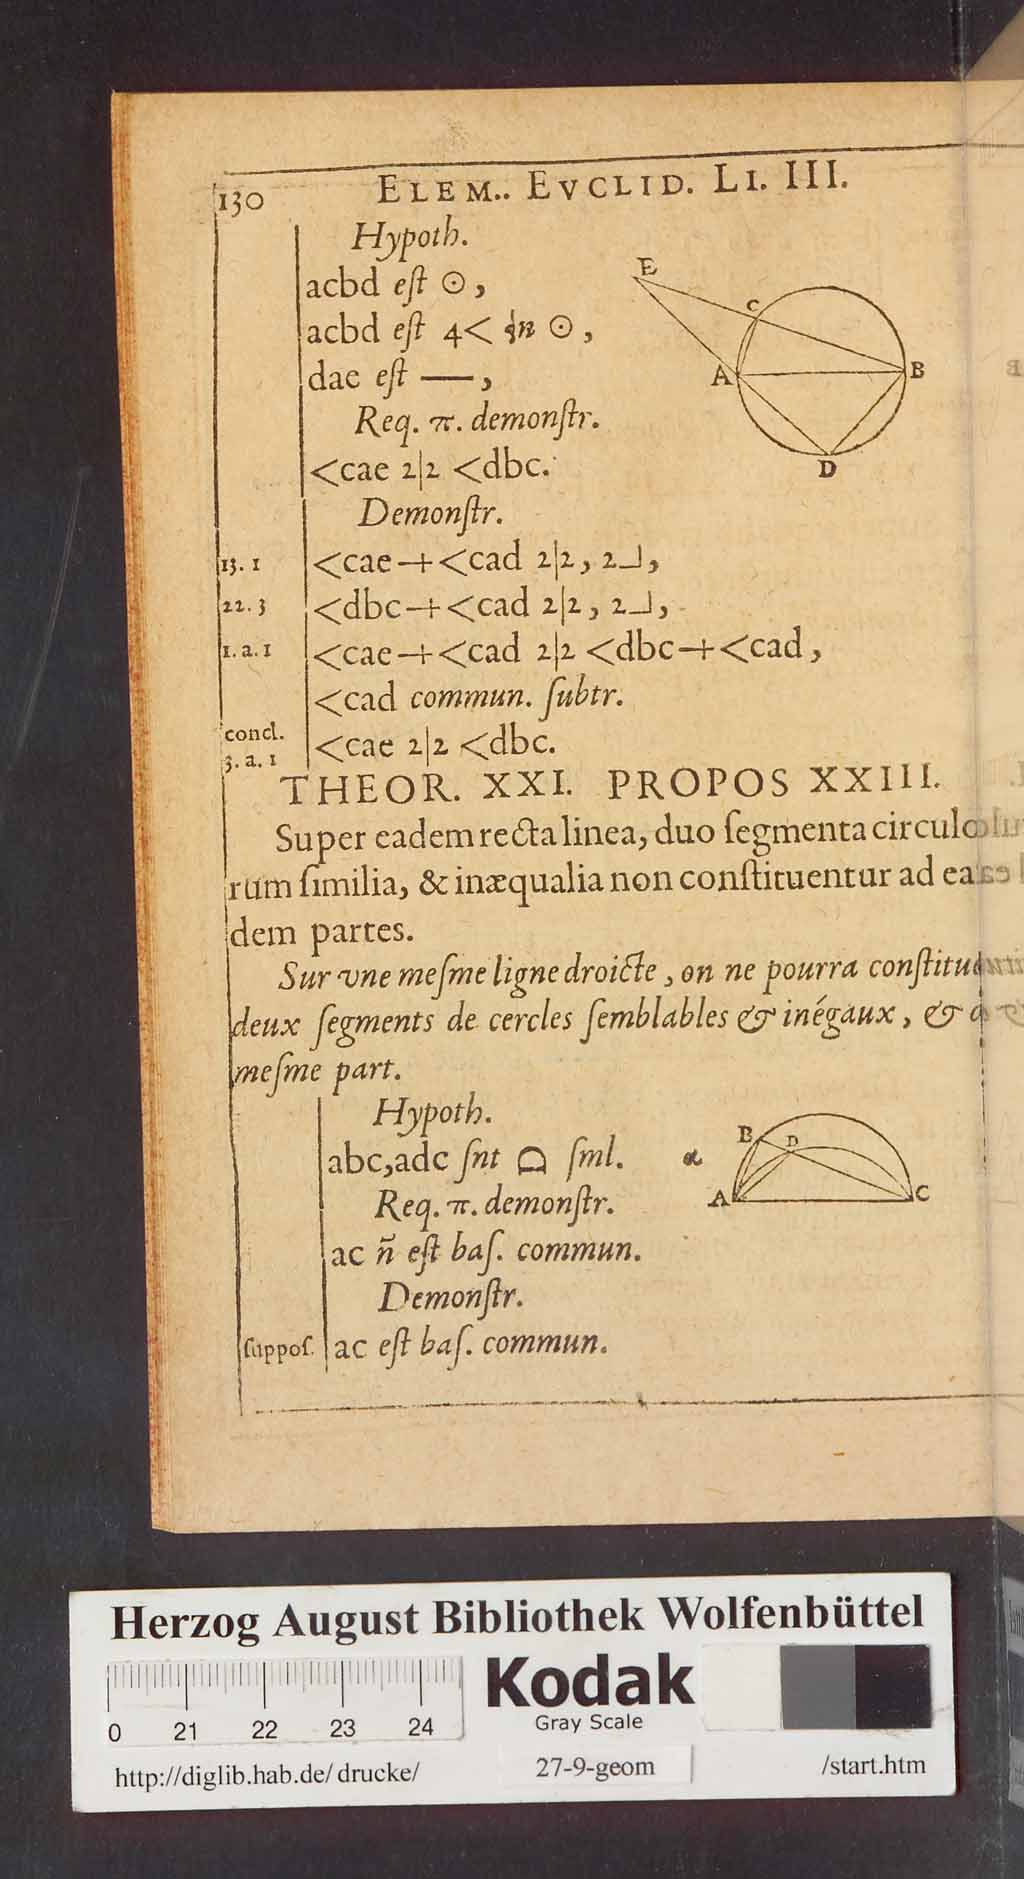 130 ELEM.. EVCLID. LI. III.
Hypoth.
acbd eſt ⊙,
acbd eſt 4< in ⊙,
dae eſt —,
Req. π. demonſtr.
<cae 2|2 <dbc.
Demonſtr.
13. 1 <cae + <cad 2|2, 2⅃,
22. 3 <dbc + <cad 2|2, 2⅃,
1. a. 1 <cae + <cad 2|2 <dbc + <cad,
<cad commun. ſubtr.
concl.
3. a. 1 <cae 2|2 <dbc.
E
C
A
B
D
THEOR. XXI. PROPOS XXIII.
Super eadem recta linea, duo ſegmenta circulo
rum ſimilia, & inæqualia non conſtituentur ad ea
dem partes.
Sur vne meſme ligne droicte, on ne pourra conſtitu
deux ſegments de cercles ſemblables & inégaux, &
meſme part.
Hypoth.
abc, adc ſnt ⌓ ſml.
Req. π. demonſtr.
ac ñ eſt baſ. commun.
Demonſtr.
ſuppoſ. ac eſt baſ. commun.
α
B
D
A
C
Herzog August Bibliothek Wolfenbüttel
0 21 22 23 24
Kodak
Gray Scale
http://diglib.hab.de/drucke/ 27-9-geom /start.htm